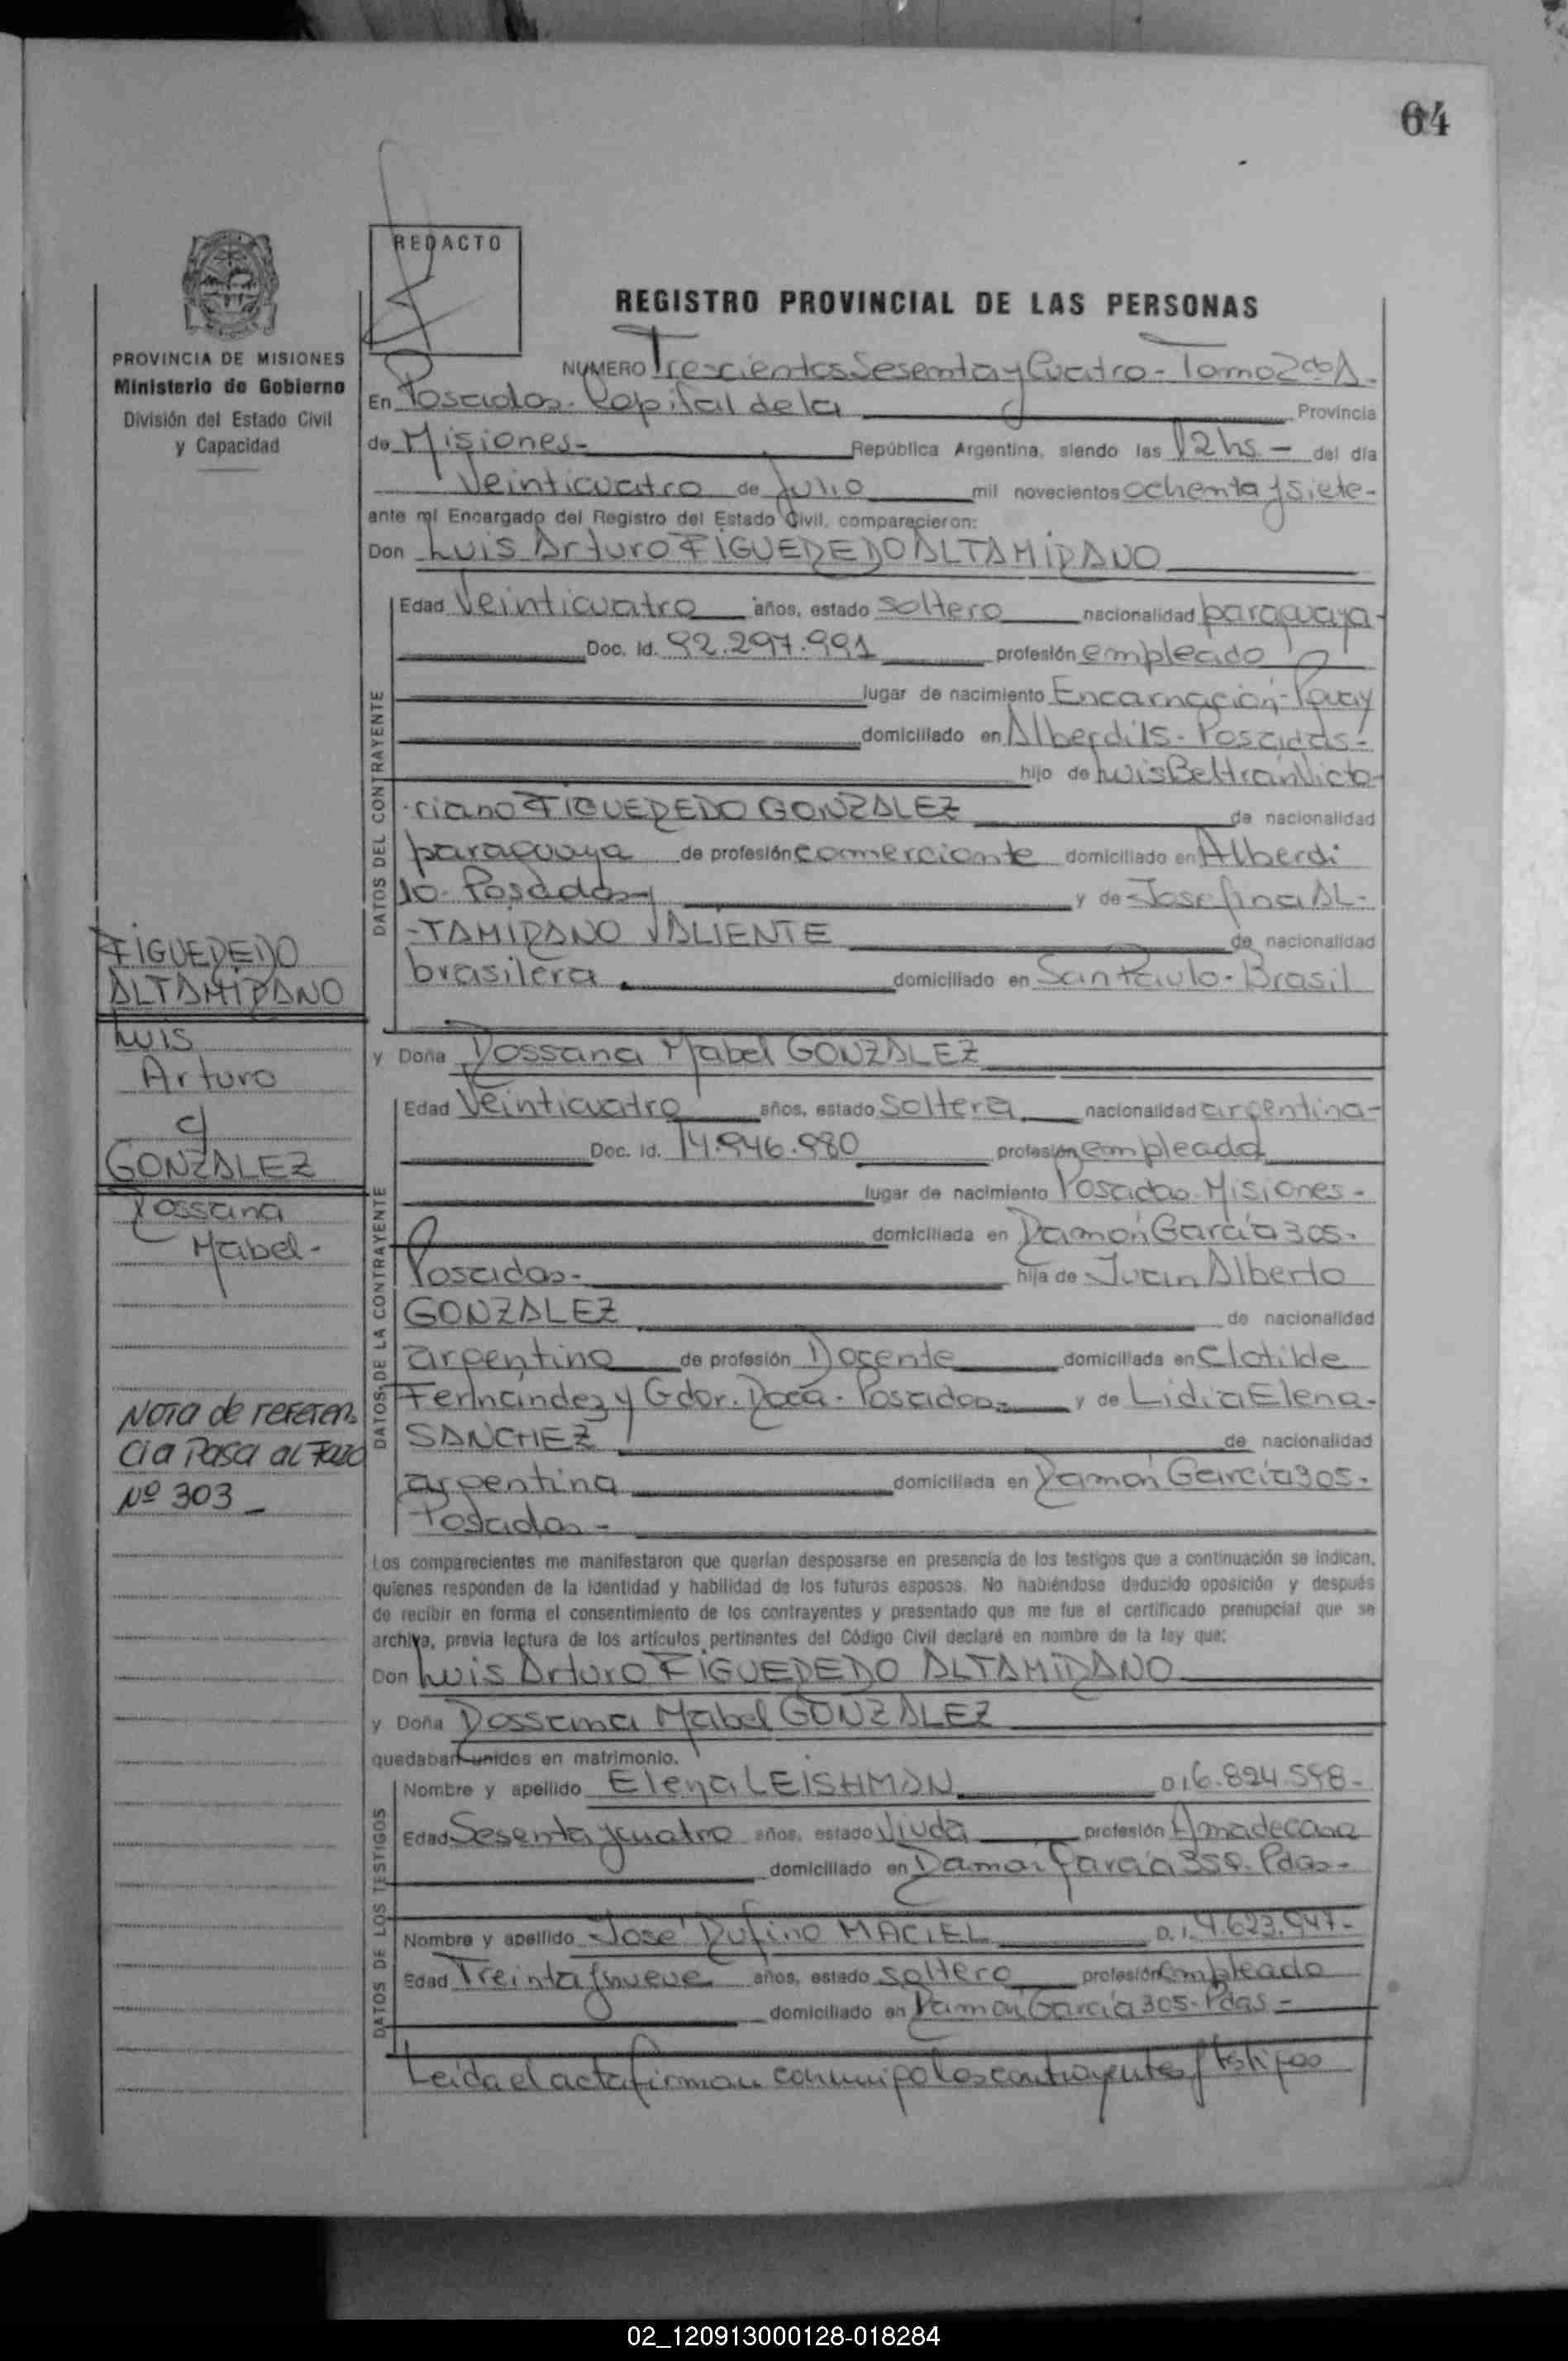 64
REDACTO
REGISTRO PROVINCIAL DE LAS PERSONAS
PROVINCIA DE MISIONES
Ministerio de Gobierno
División del Estado Civil
y Capacidad
NUMERO Trescientos Sesenta y Cuatro - Tomo 2do A -
En Posadas - Capital de la Provincia
de Misiones - República Argentina, siendo las 12 hs. - del día
Veinticuatro de Julio mil novecientos ochenta y siete -
ante mi Encargado del Registro del Estado Civil, comparecieron:
Don Luis Arturo FIGUEREDO ALTAMIRANO
DATOS DEL CONTRAYENTE
Edad Veinticuatro años, estado soltero nacionalidad paraguaya -
Doc. Id. 92.297.991 profesión empleado
lugar de nacimiento Encarnación - Pguay
domiciliado en Alberdi 15 - Posadas -
hijo de Luis Beltrán Victo-
-riano FIGUEREDO GONZALEZ de nacionalidad
paraguaya de profesión comerciante domiciliado en Alberdi
10 - Posadas - y de Josefina AL-
-TAMIRANO VALIENTE de nacionalidad
brasilera domiciliado en San Paulo - Brasil
FIGUEREDO
ALTAMIRANO
Luis
Arturo
c/
GONZALEZ
Rossana
Mabel -
Nota de referen
cia Pasa al Folio
Nº 303 _
y Doña Rossana Mabel GONZALEZ
DATOS DE LA CONTRAYENTE
Edad Veinticuatro años, estado soltera nacionalidad argentina -
Doc. Id. 14.946.980 profesión empleada
lugar de nacimiento Posadas - Misiones -
domiciliada en Ramón García 305 -
Posadas - hija de Juan Alberto
GONZALEZ de nacionalidad
argentino de profesión Docente domiciliada en Clotilde
Fernández y Gdor. Roca - Posadas - y de Lidia Elena -
SANCHEZ de nacionalidad
argentina domiciliada en Ramón García 305 -
Posadas -
Los comparecientes me manifestaron que querían desposarse en presencia de los testigos que a continuación se indican,
quienes responden de la identidad y habilidad de los futuros esposos. No habiéndose deducido oposición y después
de recibir en forma el consentimiento de los contrayentes y presentado que me fue el certificado prenupcial que se
archiva, previa lectura de los artículos pertinentes del Código Civil declaré en nombre de la ley que:
Don Luis Arturo FIGUEREDO ALTAMIRANO
y Doña Rossana Mabel GONZALEZ
quedaban unidos en matrimonio.
DATOS DE LOS TESTIGOS
Nombre y apellido Elena LEISHMAN D.I. 6.824.598 -
Edad Sesenta y cuatro años, estado Viuda profesión Ama de casa
domiciliado en Ramón García 359 - Pdas -
Nombre y apellido José Rufino MACIEL D.I. 4.623.947 -
Edad Treinta y nueve años, estado soltero profesión empleado
domiciliado en Ramón García 305 - Pdas -
Leida el acta firman conmigo los contrayentes y testigos
02_120913000128-018284